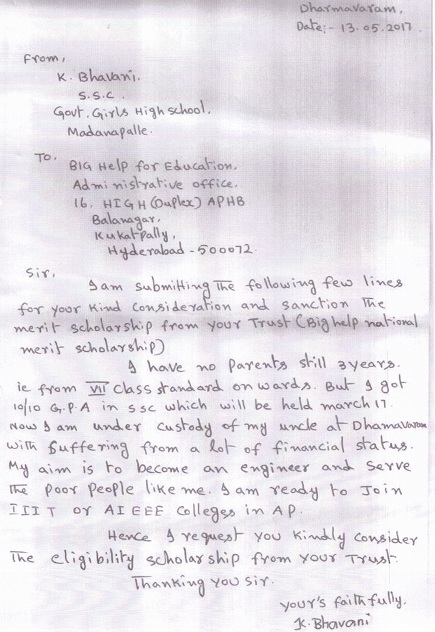 Dharmavaram,
Date:- 13.05.2017
From,
K. Bhavani.
S.S.C.
Govt. Girls High school.
Madanapalle.
To.
BIG Help for Education.
Administrative office.
16. HIGH (Duplex) APHB
Balanagar,
Kukatpally,
Hyderabad - 500072.
Sir,
I am submitting The following few lines
for your kind consideration and sanction The
merit scholarship from your Trust (Bighelp national
merit scholarship)
I have no Parents still 3 years.
ie from VII Class standard on wards. But I got
10/10 G.P.A in SSC which will be held march 17.
Now I am under custody of my uncle at Dhamavaram
with suffering from a lot of financial status.
My aim is to become an engineer and serve
The poor People like me. I am ready to Join
IIIT or AIEEE Colleges in AP.
Hence I request you kindly consider
The eligibility scholarship from your Trust.
Thanking you sir.
your's faithfully.
K. Bhavani